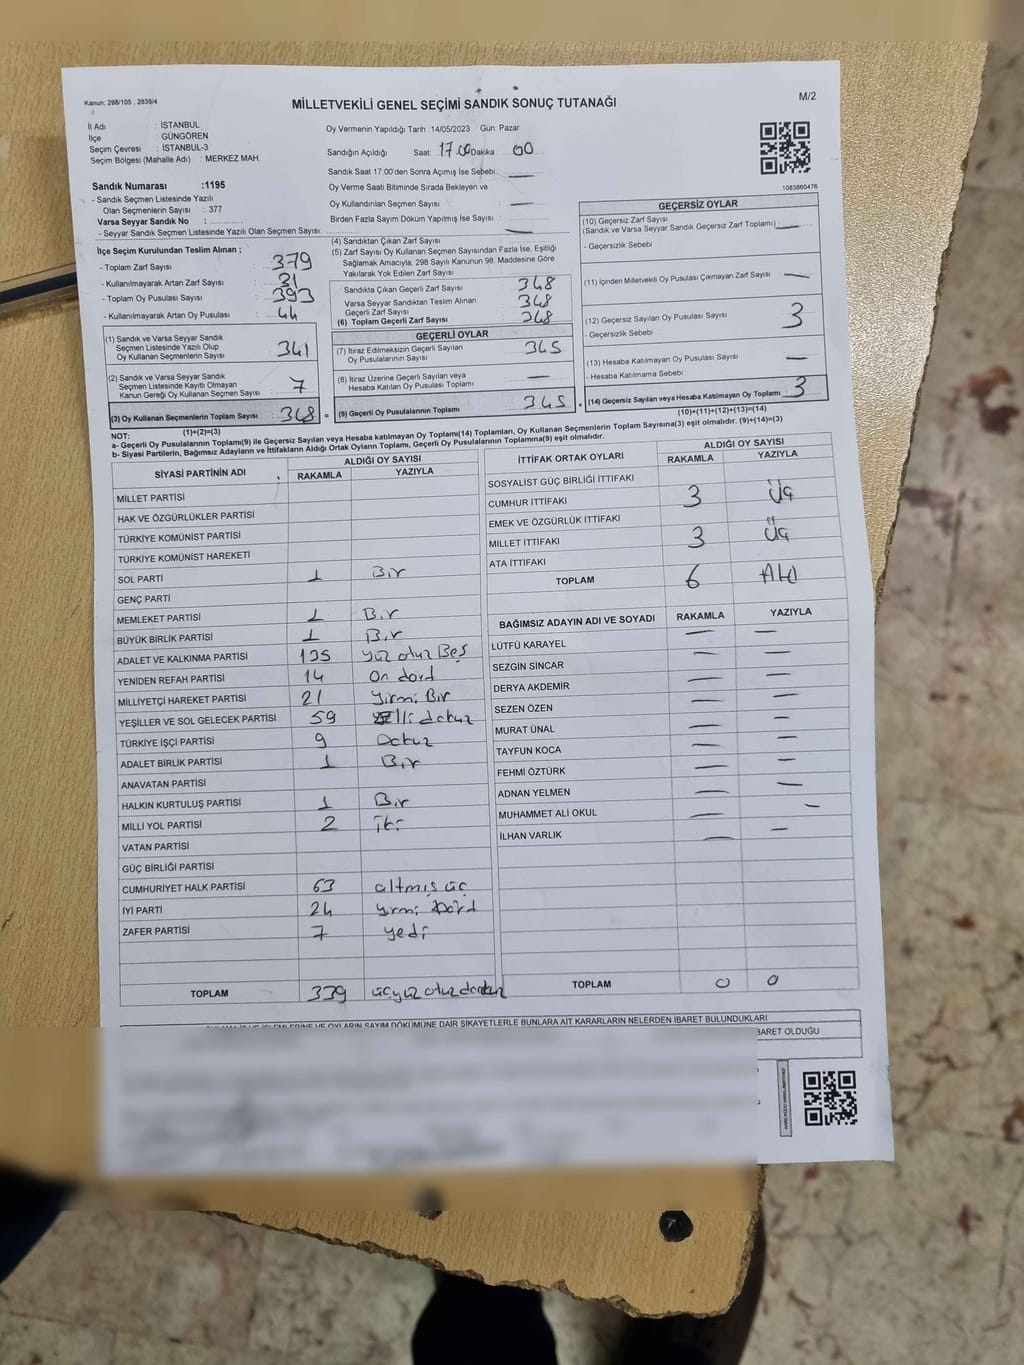 Kanun; 298/105 , 2839/4
MİLLETVEKİLİ GENEL SEÇİMİ SANDIK SONUÇ TUTANAĞI
M/2
İl Adı : İSTANBUL
İlçe : GÜNGÖREN
Seçim Çevresi : İSTANBUL-3
Seçim Bölgesi (Mahalle Adı) : MERKEZ MAH.
Oy Vermenin Yapıldığı Tarih :14/05/2023 Gün: Pazar
Sandığın Açıldığı Saat: 17.00 Dakika 00
Sandık Saat 17:00'den Sonra Açımış İse Sebebi: —
Oy Verme Saati Bitiminde Sırada Bekleyen ve
Oy Kullandırılan Seçmen Sayısı : —
Birden Fazla Sayım Döküm Yapılmış İse Sayısı : —
1083860476
Sandık Numarası :1195
- Sandık Seçmen Listesinde Yazılı
Olan Seçmenlerin Sayısı : 377
Varsa Seyyar Sandık No : ..............
- Seyyar Sandık Seçmen Listesinde Yazılı Olan Seçmen Sayısı: ..............
İlçe Seçim Kurulundan Teslim Alınan ;
- Toplam Zarf Sayısı : 379
- Kullanılmayarak Artan Zarf Sayısı : 31
- Toplam Oy Pusulası Sayısı : 393
- Kullanılmayarak Artan Oy Pusulası : 44
(1) Sandık ve Varsa Seyyar Sandık
Seçmen Listesinde Yazılı Olup
Oy Kullanan Seçmenlerin Sayısı : 341
(2) Sandık ve Varsa Seyyar Sandık
Seçmen Listesinde Kayıtlı Olmayan
Kanun Gereği Oy Kullanan Seçmen Sayısı : 7
(3) Oy Kullanan Seçmenlerin Toplam Sayısı : 348 =
(1)+(2)=(3)
(4) Sandıktan Çıkan Zarf Sayısı
(5) Zarf Sayısı Oy Kullanan Seçmen Sayısından Fazla İse, Eşitliği
Sağlamak Amacıyla, 298 Sayılı Kanunun 98. Maddesine Göre
Yakılarak Yok Edilen Zarf Sayısı
Sandıkta Çıkan Geçerli Zarf Sayısı : 348
Varsa Seyyar Sandıktan Teslim Alınan
Geçerli Zarf Sayısı : 348
(6) Toplam Geçerli Zarf Sayısı : 348
GEÇERLİ OYLAR
(7) İtiraz Edilmeksizin Geçerli Sayılan
Oy Pusulalarının Sayısı : 345
(8) İtiraz Üzerine Geçerli Sayılan veya
Hesaba Katılan Oy Pusulası Toplamı : —
(9) Geçerli Oy Pusulalarının Toplamı : 345 +
GEÇERSİZ OYLAR
(10) Geçersiz Zarf Sayısı
(Sandık ve Varsa Seyyar Sandık Geçersiz Zarf Toplamı) : —
- Geçersizlik Sebebi :
(11) İçinden Milletvekili Oy Pusulası Çıkmayan Zarf Sayısı : —
(12) Geçersiz Sayılan Oy Pusulası Sayısı : 3
- Geçersizlik Sebebi :
(13) Hesaba Katılmayan Oy Pusulası Sayısı : —
- Hesaba Katılmama Sebebi :
(14) Geçersiz Sayılan veya Hesaba Katılmayan Oy Toplamı : 3
(10)+(11)+(12)+(13)=(14)
NOT:
a- Geçerli Oy Pusulalarının Toplamı(9) ile Geçersiz Sayılan veya Hesaba katılmayan Oy Toplamı(14) Toplamları, Oy Kullanan Seçmenlerin Toplam Sayısına(3) eşit olmalıdır. (9)+(14)=(3)
b- Siyasi Partilerin, Bağımsız Adayların ve İttifakların Aldığı Ortak Oyların Toplamı, Geçerli Oy Pusulalarının Toplamına(9) eşit olmalıdır.
SİYASİ PARTİNİN ADI ALDIĞI OY SAYISI
RAKAMLA YAZIYLA
MİLLET PARTİSİ
HAK VE ÖZGÜRLÜKLER PARTİSİ
TÜRKİYE KOMÜNİST PARTİSİ
TÜRKİYE KOMÜNİST HAREKETİ
SOL PARTİ 1 Bir
GENÇ PARTİ
MEMLEKET PARTİSİ 1 Bir
BÜYÜK BİRLİK PARTİSİ 1 Bir
ADALET VE KALKINMA PARTİSİ 135 yüz otuz Beş
YENİDEN REFAH PARTİSİ 14 On dört
MİLLİYETÇİ HAREKET PARTİSİ 21 Yirmi Bir
YEŞİLLER VE SOL GELECEK PARTİSİ 59 Elli dokuz
TÜRKİYE İŞÇİ PARTİSİ 9 Dokuz
ADALET BİRLİK PARTİSİ 1 Bir
ANAVATAN PARTİSİ
HALKIN KURTULUŞ PARTİSİ 1 Bir
MİLLİ YOL PARTİSİ 2 iki
VATAN PARTİSİ
GÜÇ BİRLİĞİ PARTİSİ
CUMHURİYET HALK PARTİSİ 63 altmış üç
İYİ PARTİ 24 yirmi dört
ZAFER PARTİSİ 7 yedi
TOPLAM 339 üçyüz otuz dokuz
İTTİFAK ORTAK OYLARI ALDIĞI OY SAYISI
RAKAMLA YAZIYLA
SOSYALİST GÜÇ BİRLİĞİ İTTİFAKI
CUMHUR İTTİFAKI 3 Üç
EMEK VE ÖZGÜRLÜK İTTİFAKI
MİLLET İTTİFAKI 3 Üç
ATA İTTİFAKI
TOPLAM 6 Altı
BAĞIMSIZ ADAYIN ADI VE SOYADI RAKAMLA YAZIYLA
LÜTFÜ KARAYEL — —
SEZGİN SİNCAR — —
DERYA AKDEMİR — —
SEZEN ÖZEN — —
MURAT ÜNAL — —
TAYFUN KOCA — —
FEHMİ ÖZTÜRK — —
ADNAN YELMEN — —
MUHAMMET ALİ OKUL — —
İLHAN VARLIK — —
TOPLAM 0 0
OYLARIN SAYIM DÖKÜMÜNE DAİR ŞİKAYETLERLE BUNLARA AİT KARARLARIN NELERDEN İBARET BULUNDUKLARI
BARET OLDUĞU